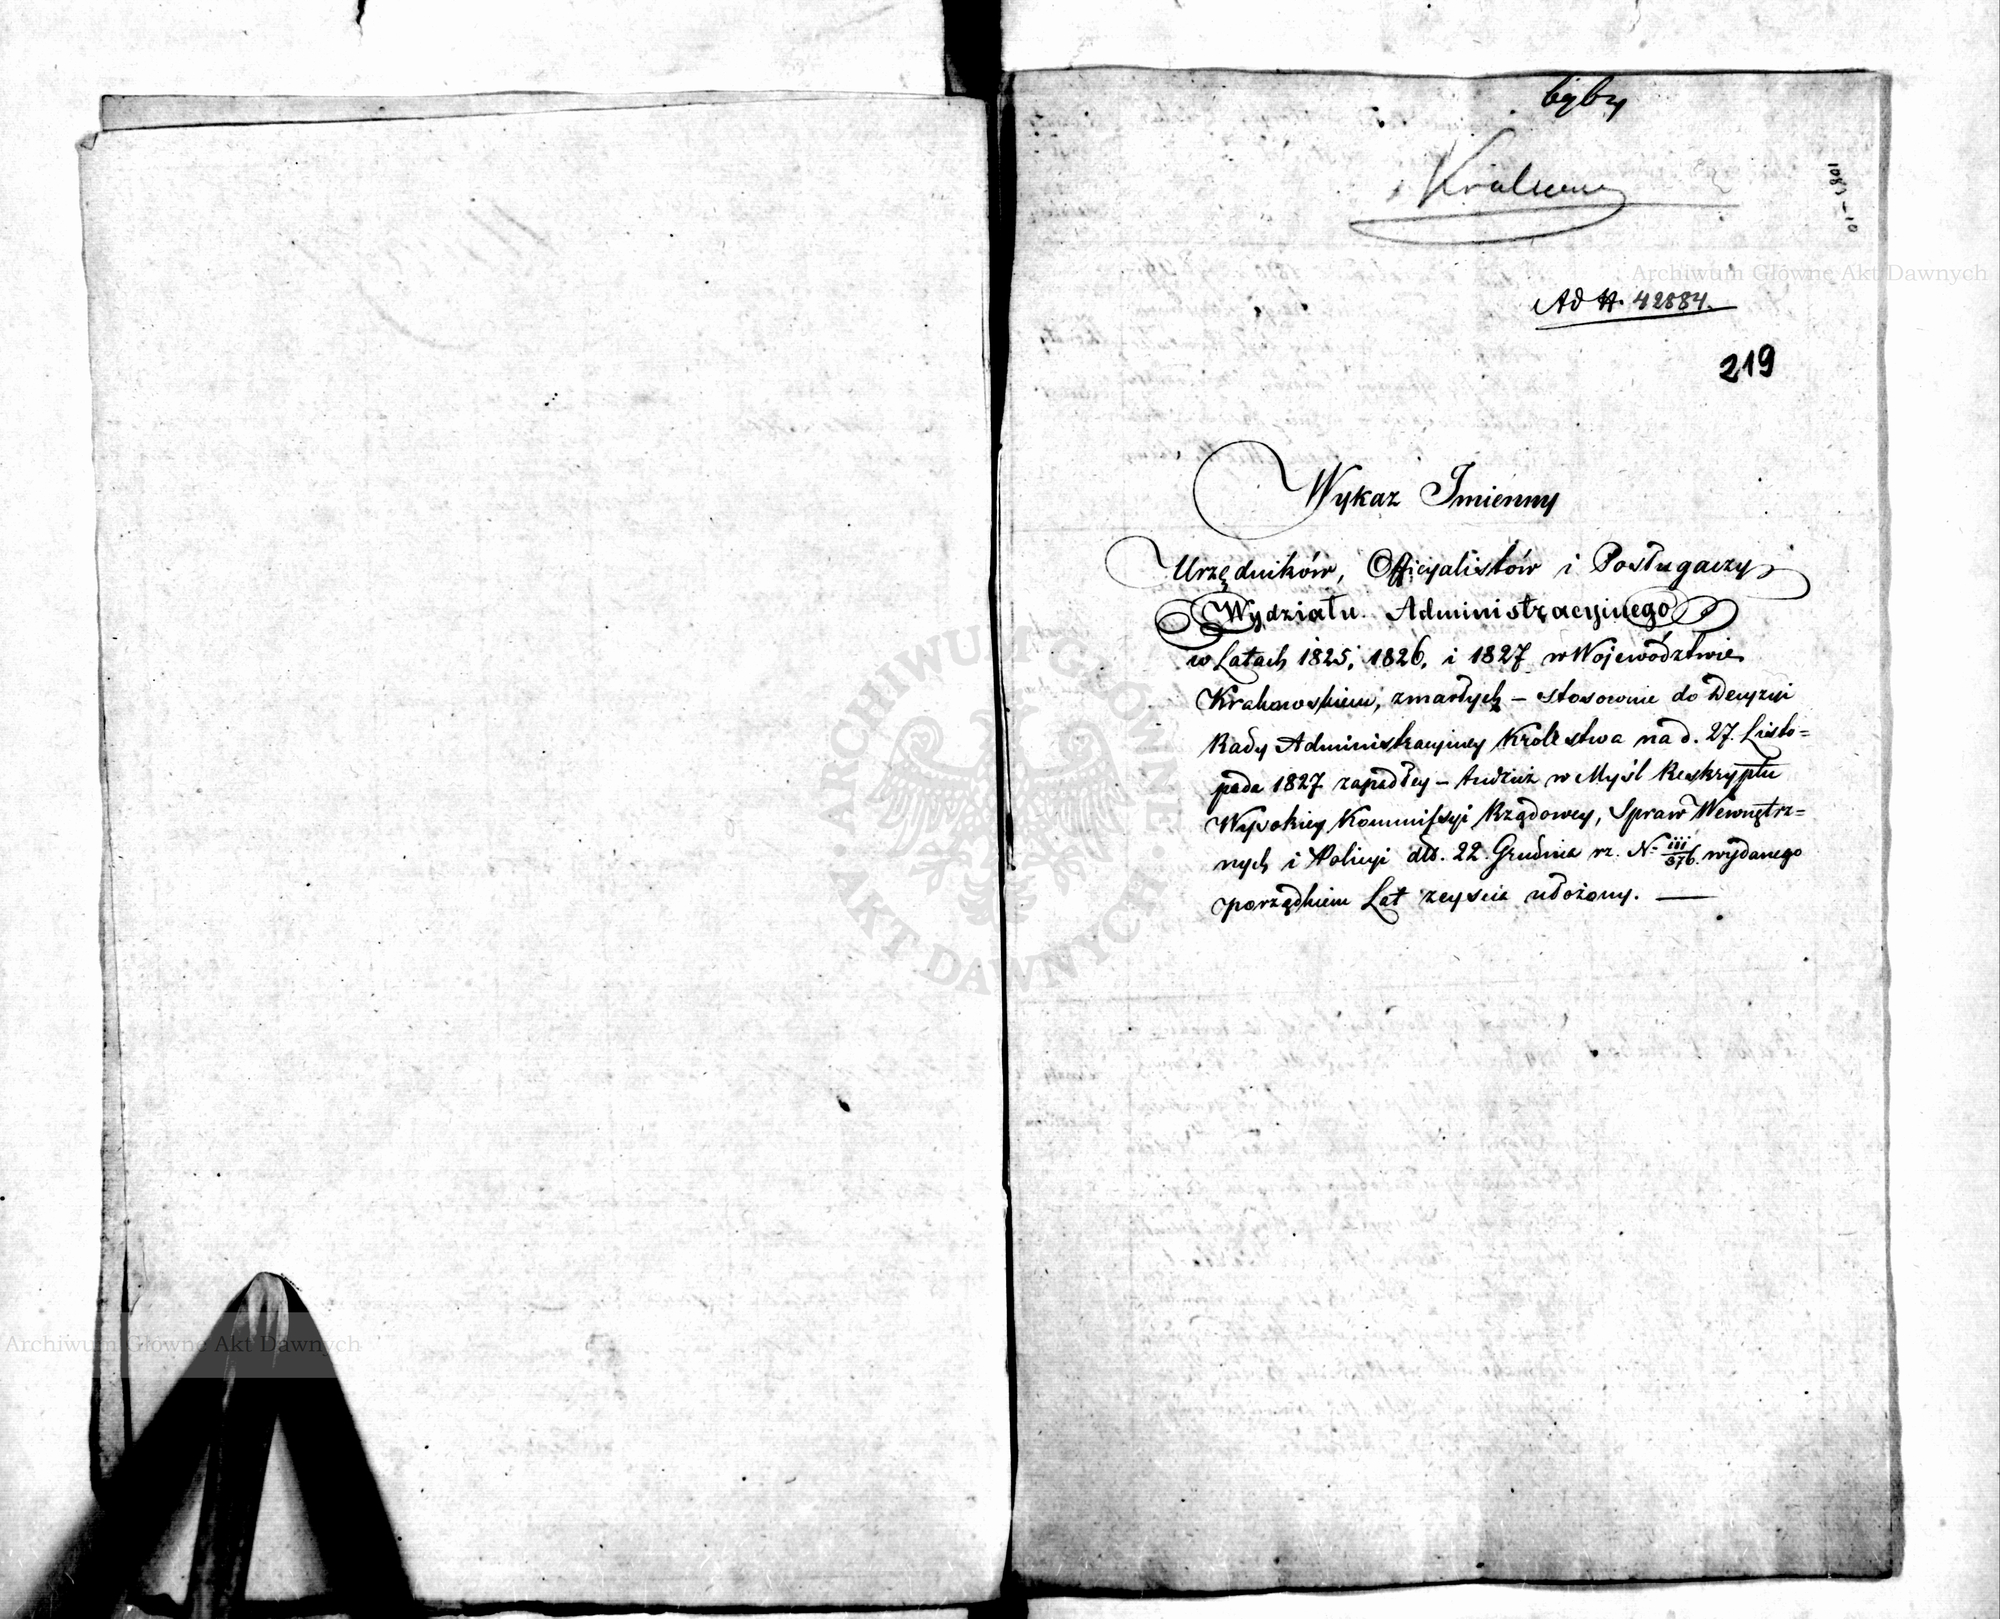 Ad N. 42884.
219
Wykaz Imienny
Urzędników, Officyalistów i Posługaczy
Wydziału Administracyjnego
w Latach 1825, 1826, i 1827 w Województwie
Krakowskiem, zmarłych – stosownie do Decyzyi
Rady Administracyjney Królestwa na d. 27. Listo=
pada 1827 zapadłey – tudzież w Myśl Reskryptu
Wysokiey Kommissyi Rządowey, Spraw Wewnętrz=
nych i Policyi dto. 22. Grudnia rz. N: III/876. wydanego
porządkiem Lat zeyścia ułożony. —
Archiwum Główne Akt Dawnych
ARCHIWUM GŁÓWNE · AKT DAWNYCH ·
Archiwum Główne Akt Dawnych